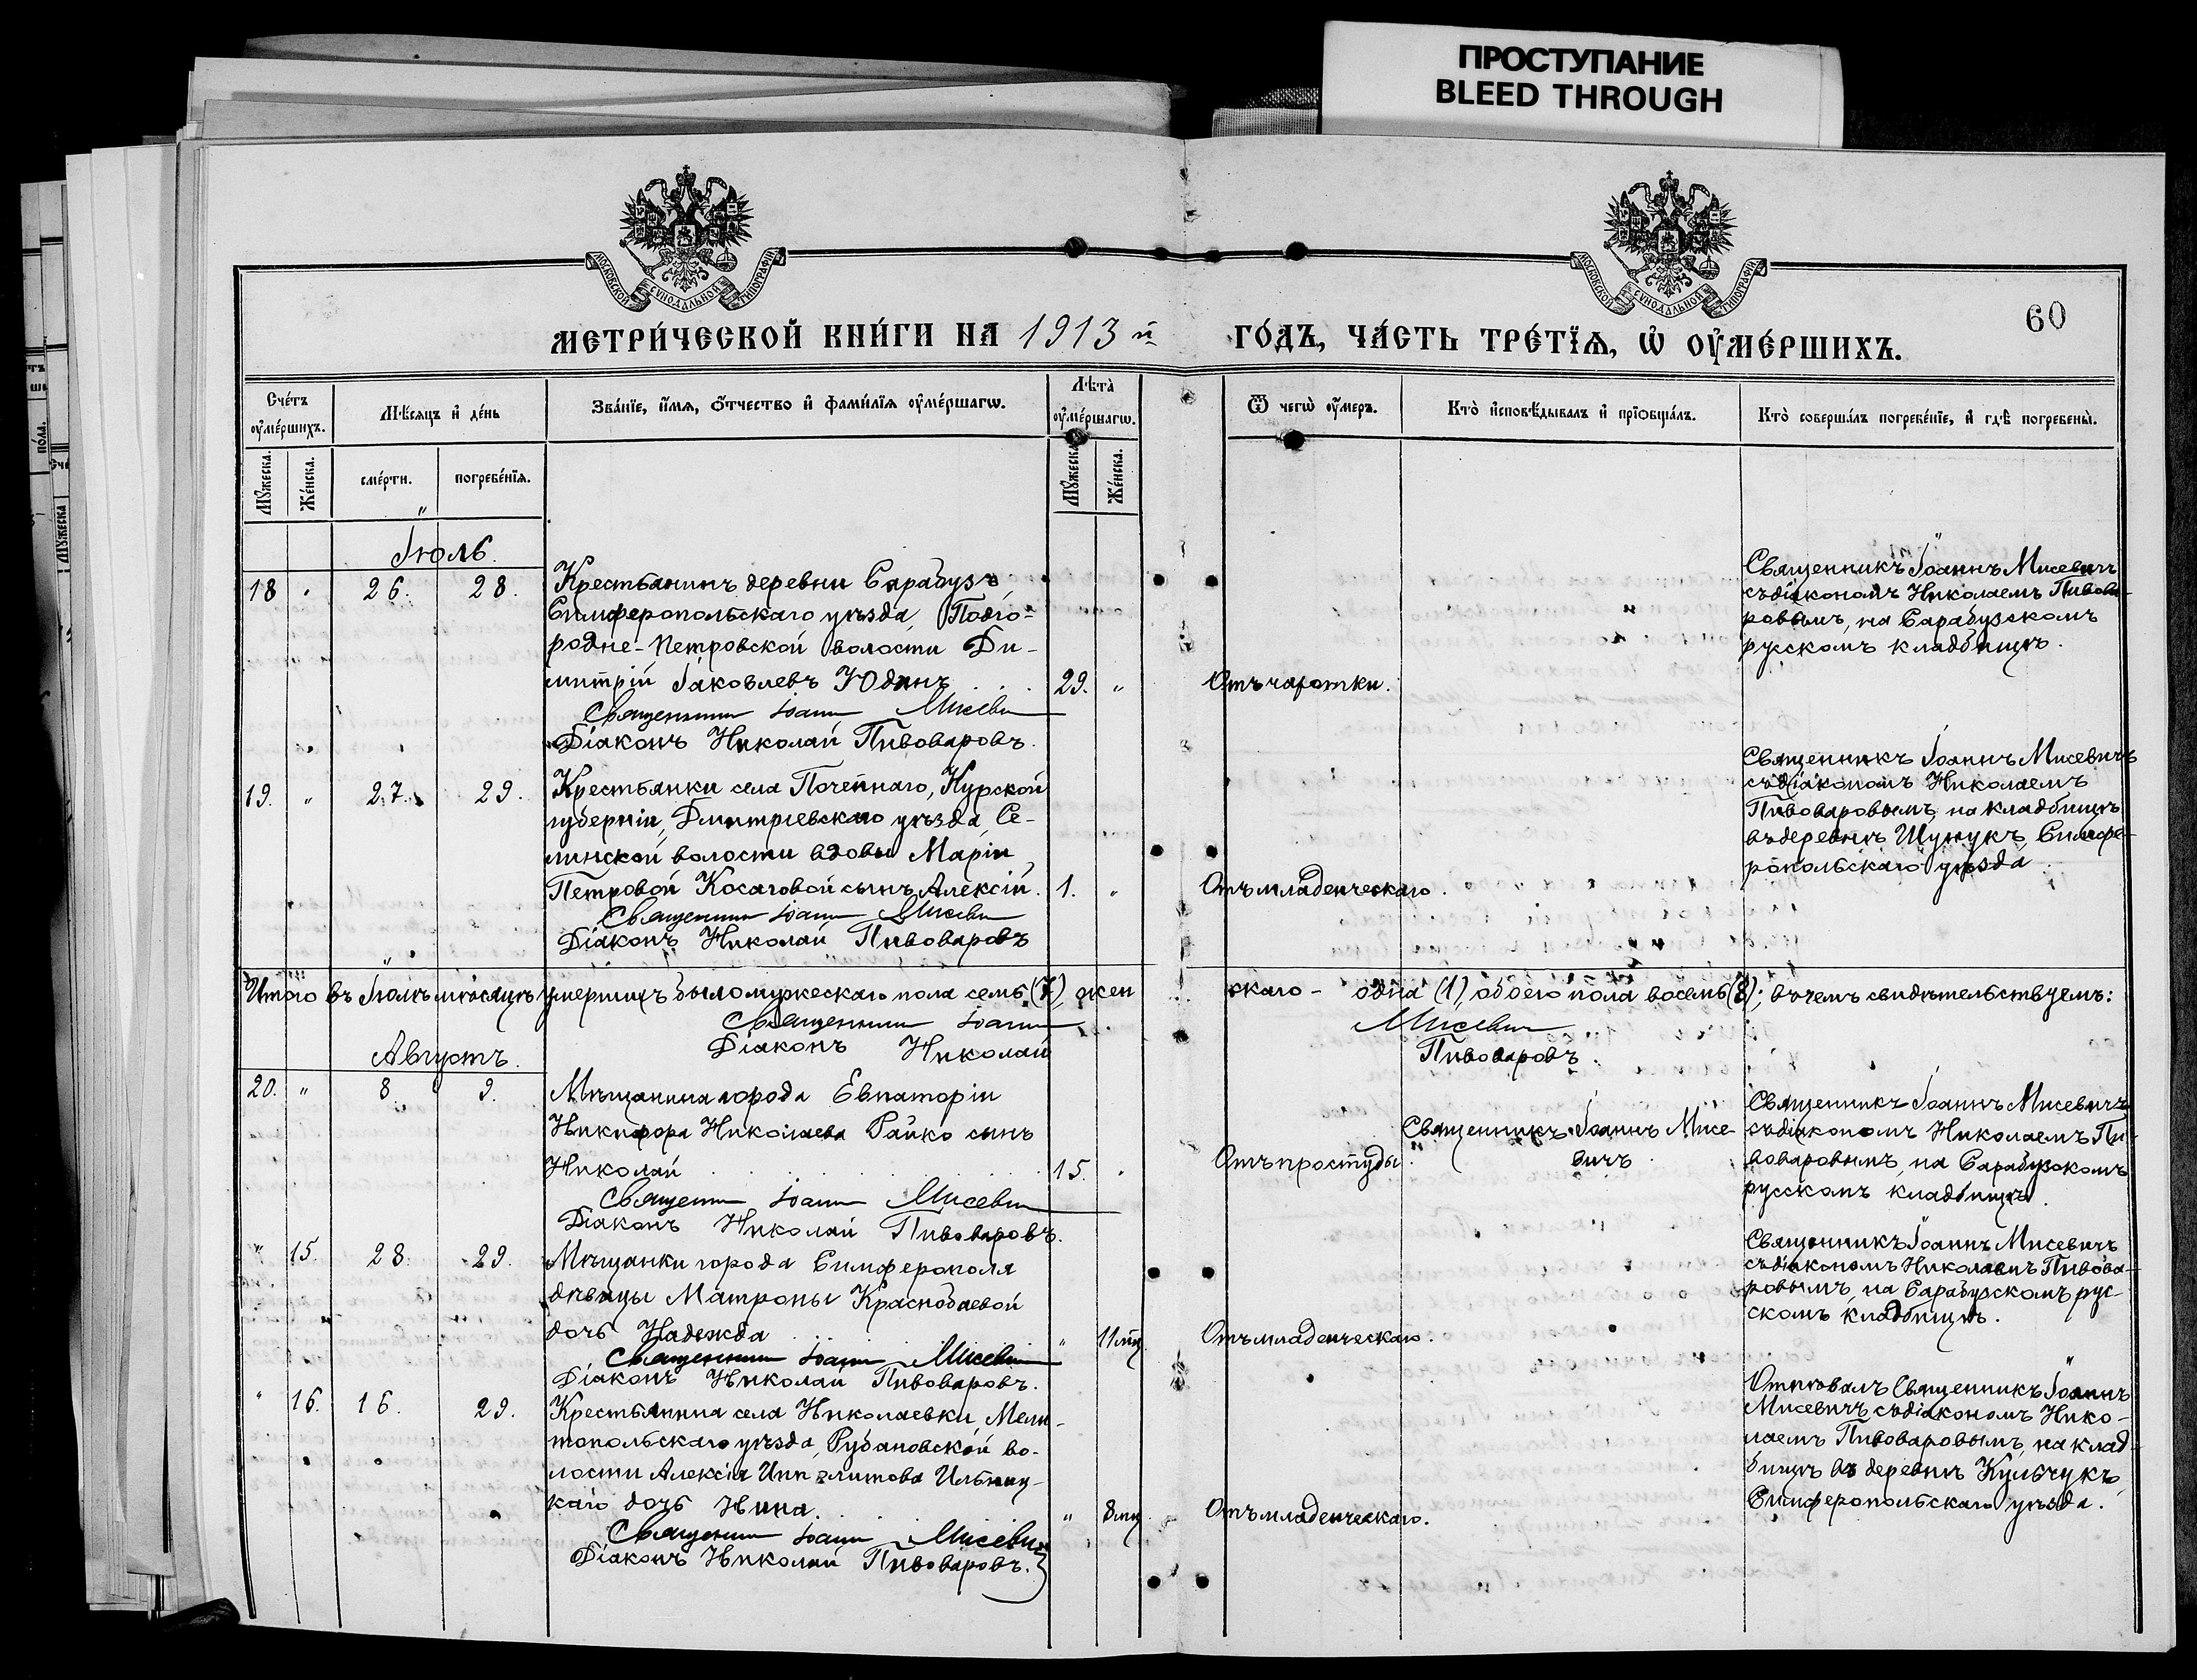 ПРОСТУПАНИЕ
BLEED THROUGH
МОСКОВСКОЙ СѴНОДАЛЬНОЙ ТИПОГРАФІИ
МОСКОВСКОЙ СѴНОДАЛЬНОЙ ТИПОГРАФІИ
60
МЕТРИ́ЧЕСКОЙ КНИ́ГИ НА 1913 й
ГО́ДЪ, ЧА́СТЬ ТРЕ́ТЇѦ, Ѡ҆ ОУ҆МЕ́РШИХЪ.
Сче́тъ оу҆ме́ршихъ.
Мѣ́сяцъ и҆ де́нь
Зва́нїе, и҆́мѧ, ѻ҆́тчество и҆ фами́лїѧ оу҆ме́ршагѡ.
Лѣта̀ оу҆ме́ршагѡ.
Ѿ чегѡ̀ оу҆́меръ.
Кто̀ и҆сповѣ́дывалъ и҆ прїѡбща́лъ.
Кто̀ соверша́лъ погребе́нїе, и҆ гдѣ̀ погребены̀.
Мꙋ́жеска.
Же́нска.
сме́рти.
погребе́нїѧ.
Мꙋ́жеска.
Же́нска.
Іюль.
18 " 26. 28. Крестьянинъ деревни Сарабузъ,
Симферопольскаго уѣзда, Подго-
родне-Петровской волости Ди-
митрій Іаковлевъ Юдинъ . . . 29. " Отъ чахотки.
Священникъ Іоаннъ Мисевичъ
Діаконъ Николай Пивоваровъ.
Священникъ Іоаннъ Мисевичъ
съ діакономъ Николаемъ Пивова-
ровымъ, на Сарабузскомъ
русскомъ кладбищѣ.
19. " 27. 29. Крестьянки села Почепнаго, Курской
губерніи, Дмитріевскаго уѣзда, Се-
линской волости вдовы Маріи
Петровой Косаговой сынъ Алексій. 1. " Отъ младенческаго.
Священникъ Іоаннъ Мисевичъ
Діаконъ Николай Пивоваровъ
Священникъ Іоаннъ Мисевичъ
съ діакономъ Николаемъ
Пивоваровымъ, на кладбищѣ
въ деревнѣ Шунукъ, Симфе-
ропольскаго уѣзда.
Итого въ Іюлѣ мѣсяцѣ умершихъ было мужескаго пола семь (7), жен
скаго - одна (1), обоего пола восемь (8); въ чемъ свидѣтельствуемъ:
Священникъ Іоаннъ Мисевичъ
Діаконъ Николай Пивоваровъ.
Августъ.
20. " 8. 9. Мѣщанина города Евпаторіи
Никифора Николаева Райко сынъ
Николай . . . 15. " Отъ простуды.
Священникъ Іоаннъ Мисевичъ
Діаконъ Николай Пивоваровъ.
Священникъ Іоаннъ Мисе-
вичъ.
Священникъ Іоаннъ Мисевичъ
съ діакономъ Николаемъ Пи-
воваровымъ, на Сарабузскомъ
русскомъ кладбищѣ.
" 15. 28. 29. Мѣщанки города Симферополя
дѣвицы Матроны Краснобаевой
дочь Надежда . . . " 11 мц. Отъ младенческаго.
Священникъ Іоаннъ Мисевичъ
Діаконъ Николай Пивоваровъ.
Священникъ Іоаннъ Мисевичъ
съ діакономъ Николаемъ Пивова-
ровымъ, на Сарабузскомъ рус-
скомъ кладбищѣ.
" 16. 16. 29. Крестьянина села Николаевки, Мели-
топольскаго уѣзда, Рубановской во-
лости Алексія Ипполитова Ильниц-
каго дочь Нина. " 8 мц. Отъ младенческаго.
Священникъ Іоаннъ Мисевичъ
Діаконъ Николай Пивоваровъ.
Отпѣвалъ Священникъ Іоаннъ
Мисевичъ съ діакономъ Нико-
лаемъ Пивоваровымъ, на клад-
бищѣ въ деревнѣ Кульчукъ,
Симферопольскаго уѣзда.